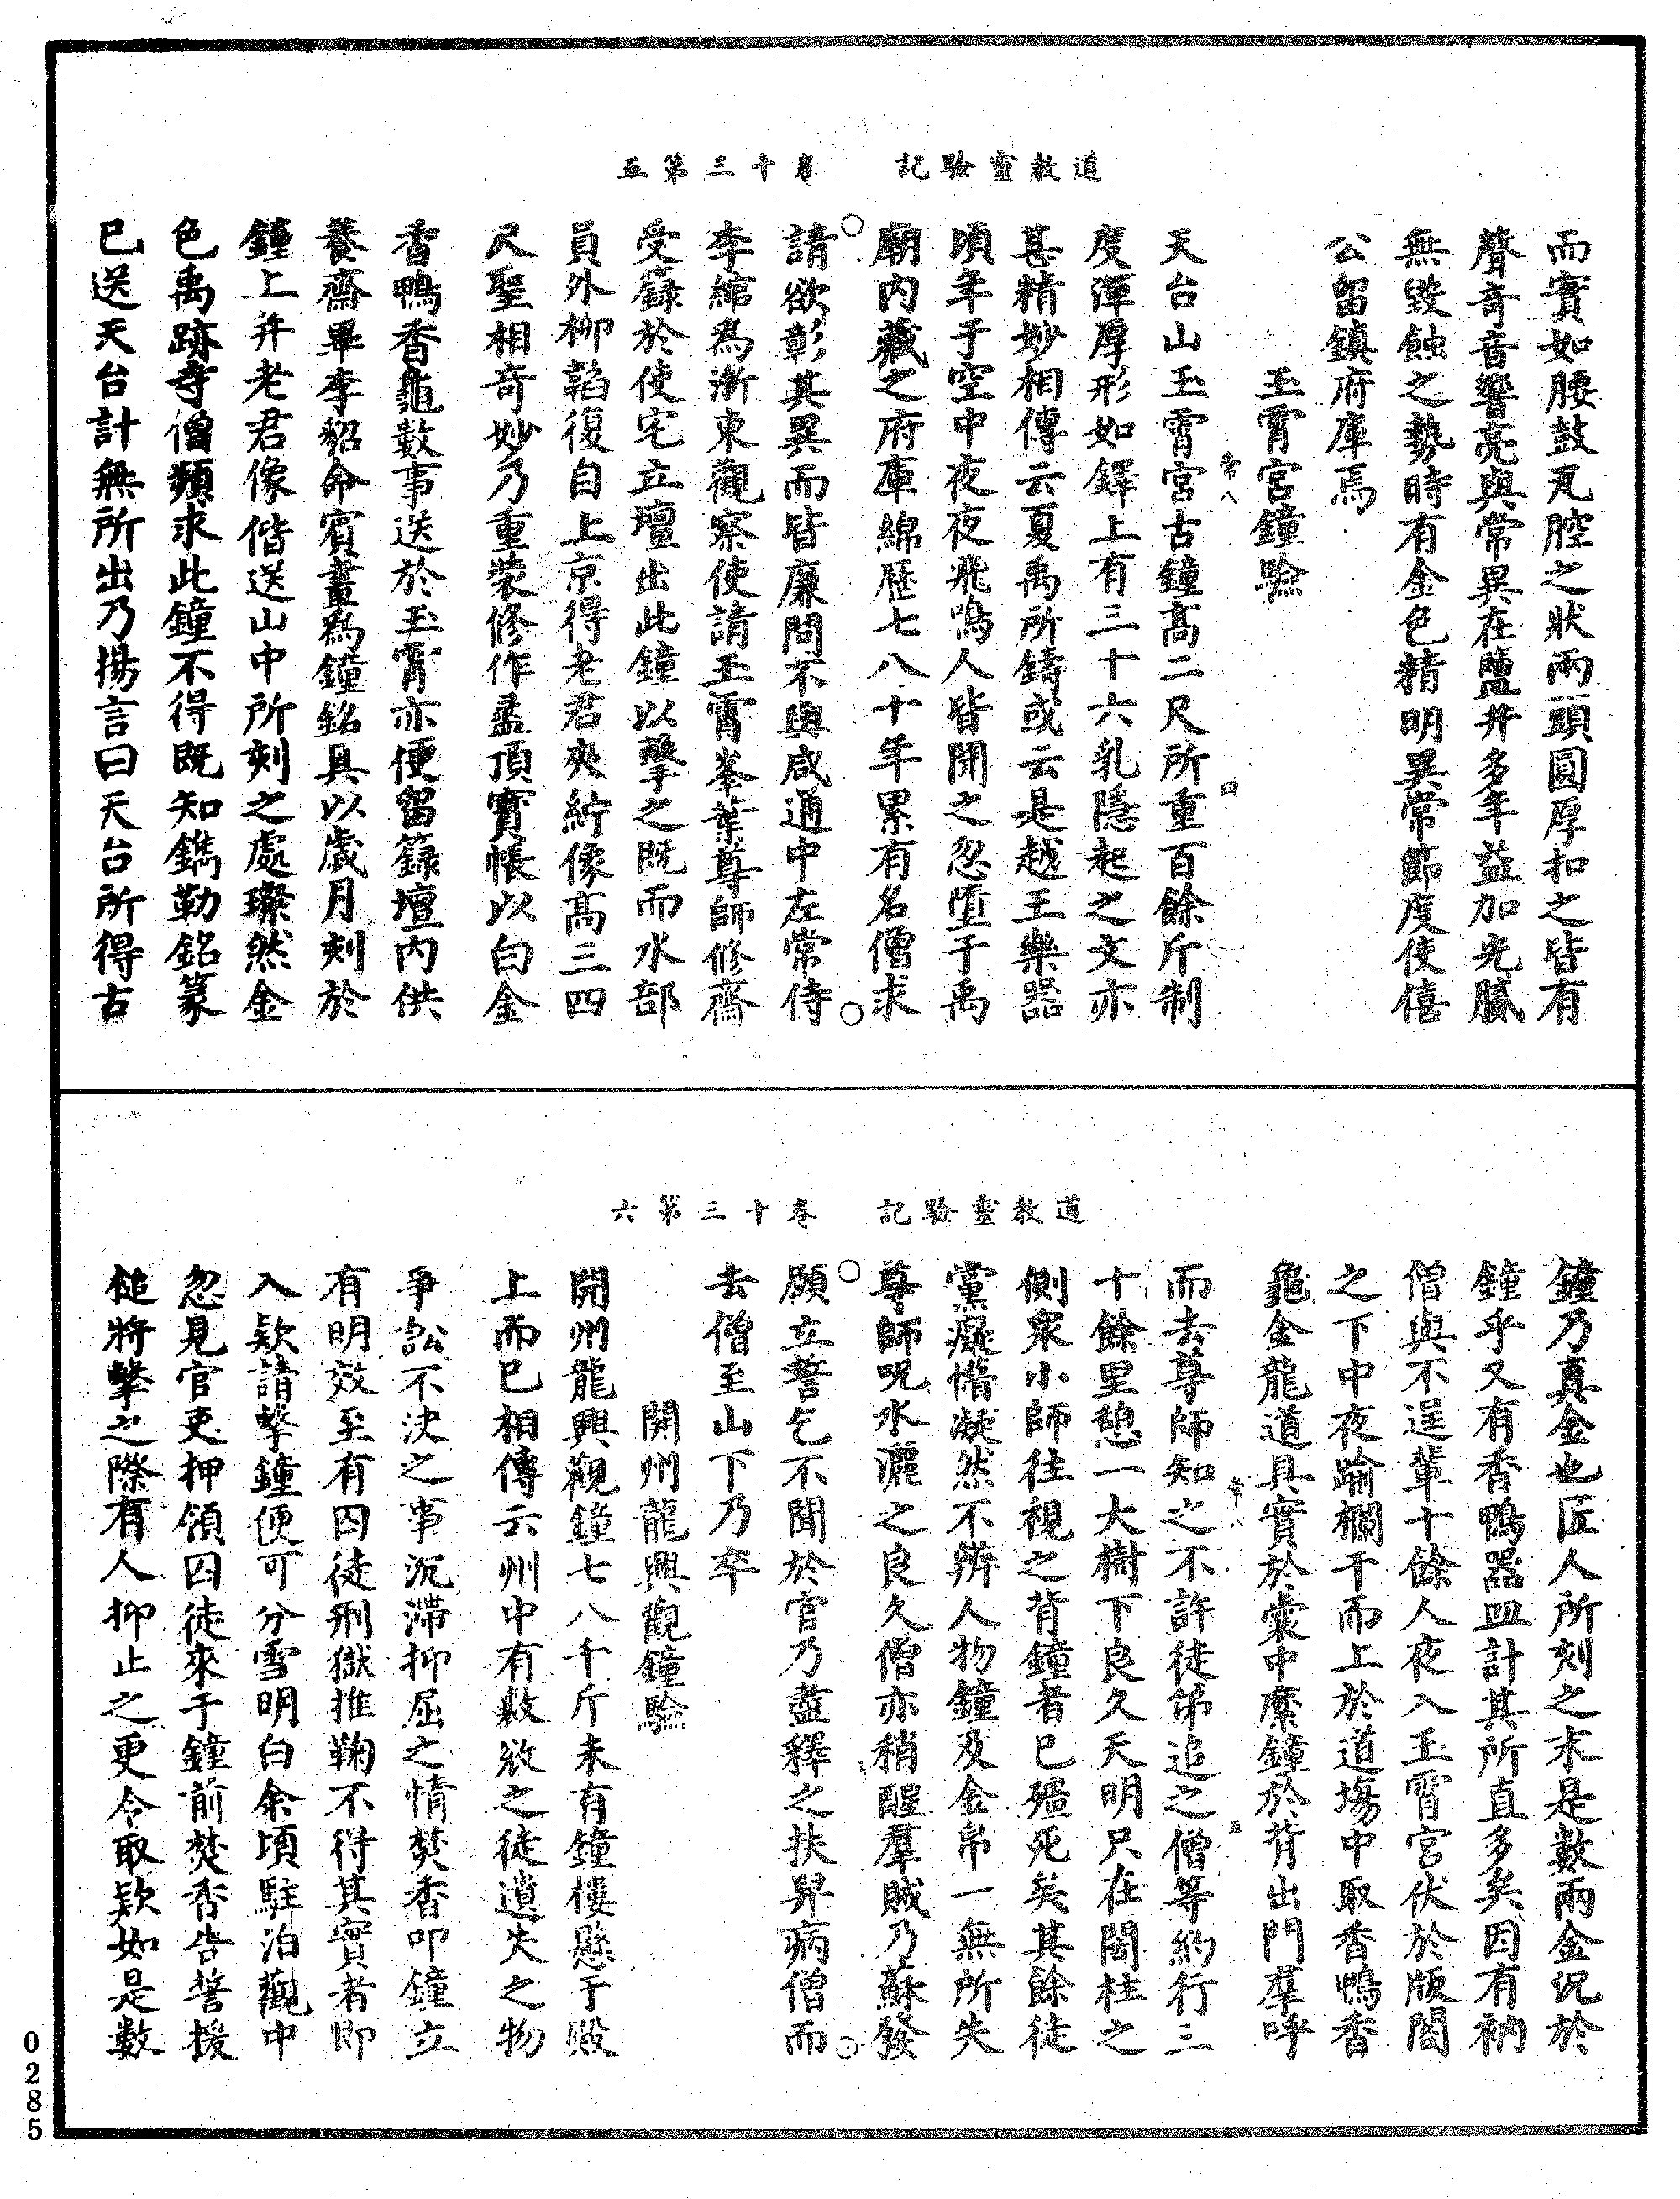 道教靈驗記　卷十三第五
而實如腰鼓瓦腔之狀兩頭圓厚扣之皆有
聲奇音響亮與常異在鹽井多年益加光膩
無毀蝕之勢時有金色精明異常節度使僖
公留鎮府庫焉
玉霄宮鐘驗
天台山玉霄宮古鐘高二尺所重百餘斤制
度渾厚形如鐸上有三十六乳隱起之文亦
甚精妙相傳云夏禹所鑄或云是越王樂器
頃年于空中夜夜飛鳴人皆聞之忽墮于禹
廟內藏之府庫綿歷七八十年累有名僧求
請欲彰其異而皆廉問不與咸通中左常侍
李綰為浙東觀察使請玉霄峯葉尊師修齋
受籙於使宅立壇出此鐘以擊之既而水部
員外柳韜復自上京得老君夾紵像高三四
尺聖相奇妙乃重裝修作盝頂寶帳以白金
香鴨香龜數事送於玉霄亦便留籙壇內供
養齋畢李貂命賓畫為鐘銘具以歲月刻於
鐘上并老君像偕送山中所刻之處璨然金
色禹跡寺僧頻求此鐘不得既知鐫勒銘篆
已送天台計無所出乃揚言曰天台所得古
道教靈驗記　卷十三第六
鐘乃真金也匠人所刻之末是數兩金況於
鐘乎又有香鴨器皿計其所直多矣因有衲
僧與不逞輩十餘人夜入玉霄宮伏於版閣
之下中夜踰欄干而上於道場中取香鴨香
龜金龍道具實於囊中縻鐘於背出門羣呼
而去尊師知之不許徒弟追之僧等約行三
十餘里憩一大樹下良久天明只在閣柱之
側眾小師往視之背鐘者已殭死矣其餘徒
黨癡惛凝然不辨人物鐘及金帛一無所失
尊師呪水灑之良久僧亦稍醒羣賊乃蘇發
願立誓乞不聞於官乃盡釋之扶舁病僧而
去僧至山下乃卒
開州龍興觀鐘驗
開州龍興觀鐘七八千斤未有鐘樓懸于殿
上而已相傳云州中有欺欵之徒遺失之物
爭訟不決之事沉滯抑屈之情焚香叩鐘立
有明效至有囚徒刑獄推鞠不得其實者即
入欵請擊鐘便可分雪明白余頃駐泊觀中
忽見官吏押領囚徒來于鐘前焚香告誓援
槌將擊之際有人抑止之更令取欵如是數
0285